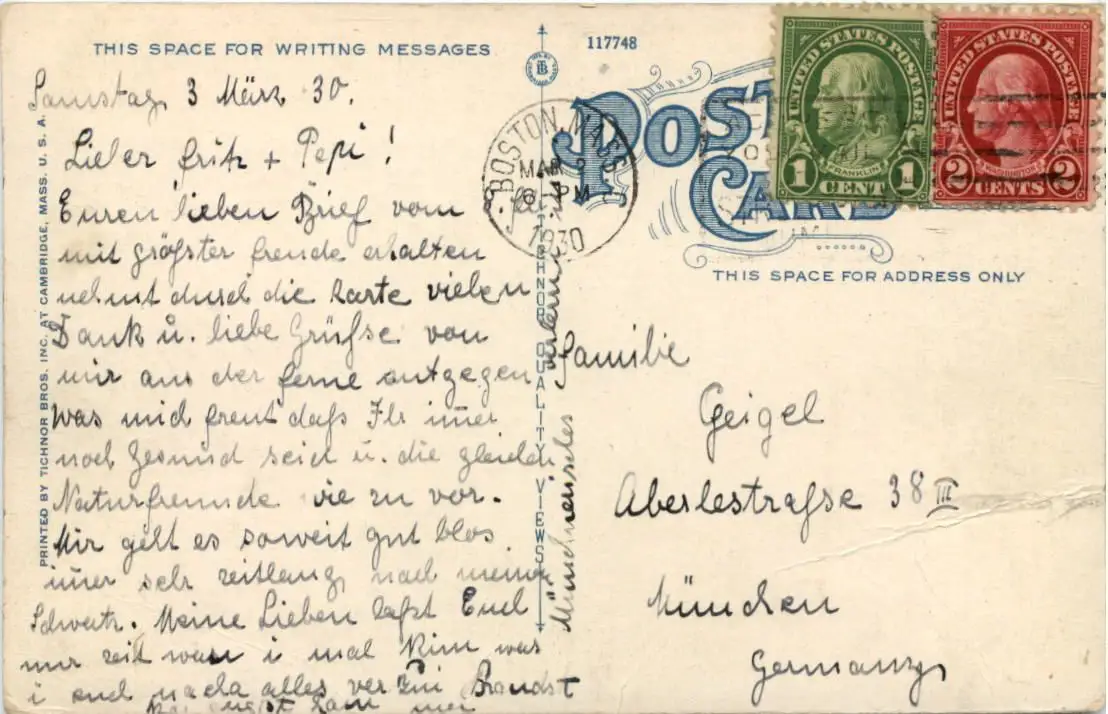 THIS SPACE FOR WRITING MESSAGES
117748
POST CARD
THIS SPACE FOR ADDRESS ONLY
UNITED STATES POSTAGE
FRANKLIN
1 CENT 1
UNITED STATES POSTAGE
WASHINGTON
2 CENTS 2
BOSTON, MASS.
MAR 3
8 - PM
1930
PRINTED BY TICHNOR BROS. INC. AT CAMBRIDGE, MASS. U. S. A.
TICHNOR QUALITY VIEWS
Samstag, 3 März 30.
Lieber Fritz + Pepi !
Euren lieben Brief vom
mit größter freude erhalten
nehmt durch die Karte vielen
Dank u. liebe Grüsse von
mir aus der ferne entgegen
was mich freut daß Ihr imer
noch Gesund seid u. die gleichen
Naturfreunde wie zu vor.
Mir geht es soweit gut blos
imer sehr zeitlang nach meinem
Schatz. Meine Lieben laßt Euch
nur zeit wan i mal kim was
i euch nacha alles ver zäi
Münchnerisches
Familie
Geigel
Aberlestraße 38 III
München
Germany